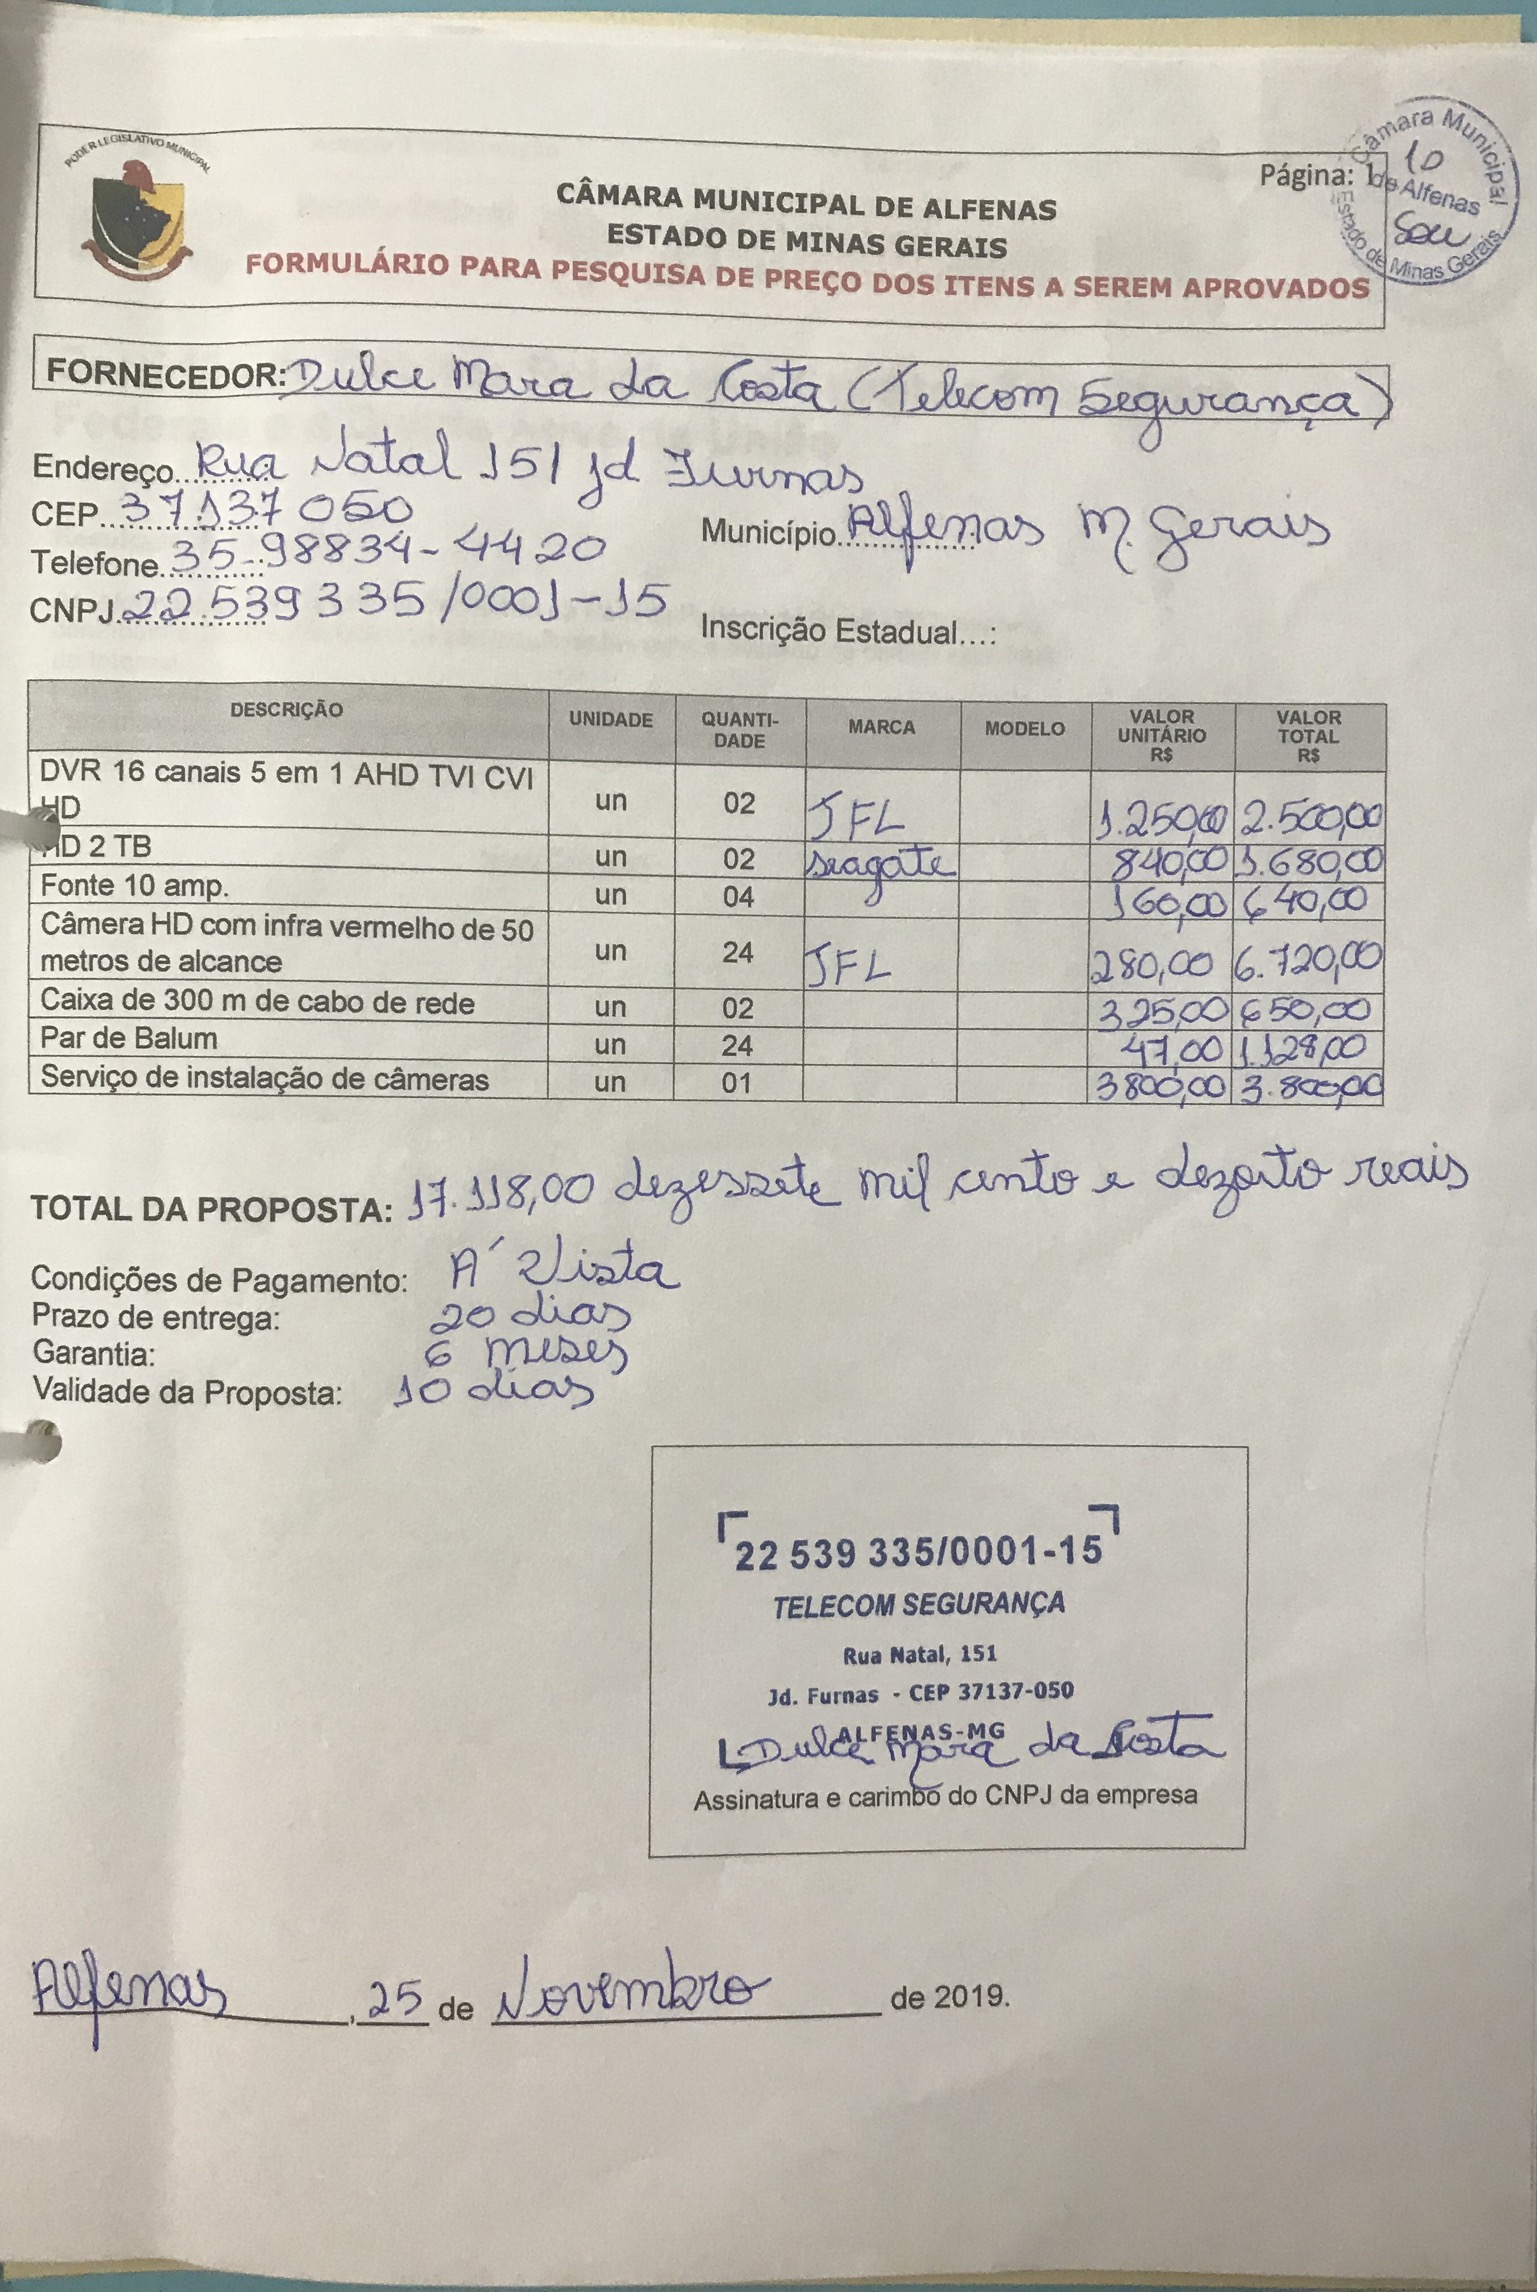 PODER LEGISLATIVO MUNICIPAL
CÂMARA MUNICIPAL DE ALFENAS
ESTADO DE MINAS GERAIS
FORMULÁRIO PARA PESQUISA DE PREÇO DOS ITENS A SEREM APROVADOS
Página: 1
Câmara Municipal
10
de Alfenas
Estado de Minas Gerais
FORNECEDOR: Dulce Mara da Costa (Telecom Segurança)
Endereço.. Rua Natal 151 jd Furnas
CEP... 37.137 050
Município... Alfenas M. Gerais
Telefone... 35-98834-4420
CNPJ... 22.539 335/0001-15
Inscrição Estadual...:
DESCRIÇÃO UNIDADE QUANTI-DADE MARCA MODELO VALOR UNITÁRIO R$ VALOR TOTAL R$
DVR 16 canais 5 em 1 AHD TVI CVI HD un 02 JFL 1.250,00 2.500,00
HD 2 TB un 02 seagate 840,00 1.680,00
Fonte 10 amp. un 04 160,00 640,00
Câmera HD com infra vermelho de 50 metros de alcance un 24 JFL 280,00 6.720,00
Caixa de 300 m de cabo de rede un 02 325,00 650,00
Par de Balum un 24 47,00 1.128,00
Serviço de instalação de câmeras un 01 3800,00 3.800,00
TOTAL DA PROPOSTA: 17.118,00 dezessete mil cento e dezoito reais
Condições de Pagamento: A´ Vista
Prazo de entrega: 20 dias
Garantia: 6 meses
Validade da Proposta: 10 dias
22 539 335/0001-15
TELECOM SEGURANÇA
Rua Natal, 151
Jd. Furnas - CEP 37137-050
ALFENAS-MG
Dulce Mara da Costa
Assinatura e carimbo do CNPJ da empresa
Alfenas, 25 de Novembro de 2019.